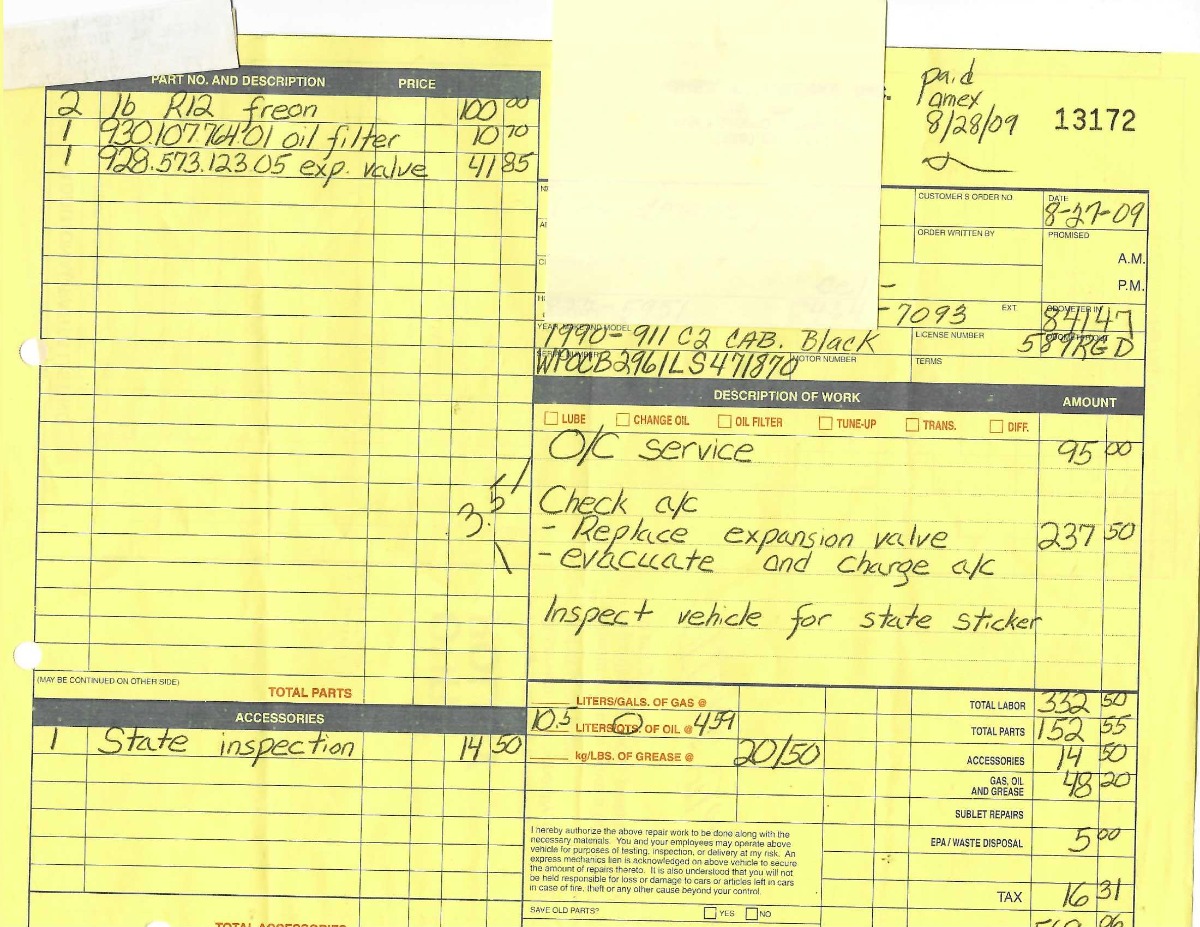 PART NO. AND DESCRIPTION PRICE
2 lb R12 freon 100 00
1 930.107.764.01 oil filter 10 70
1 928.573.123.05 exp. valve 41 85
(MAY BE CONTINUED ON OTHER SIDE)
TOTAL PARTS
ACCESSORIES
1 State inspection 14 50
TOTAL ACCESSORIES
paid
amex
8/28/09
13172
CUSTOMER'S ORDER NO.
DATE
8-27-09
ORDER WRITTEN BY
PROMISED
A.M.
P.M.
-7093
EXT.
ODOMETER IN
84147
YEAR, MAKE AND MODEL
1990-911 C2 CAB. Black
LICENSE NUMBER
587RGD
SERIAL NUMBER
WP0CB2961LS471870
MOTOR NUMBER
TERMS
DESCRIPTION OF WORK AMOUNT
LUBE CHANGE OIL OIL FILTER TUNE-UP TRANS. DIFF.
O/C service 95 00
3.5
Check a/c
- Replace expansion valve 237 50
- evacuate and charge a/c
Inspect vehicle for state sticker
LITERS/GALS. OF GAS @
10.5 LITERS/QTS. OF OIL @ 4.59
kg/LBS. OF GREASE @ 20/50
TOTAL LABOR 332 50
TOTAL PARTS 152 55
ACCESSORIES 14 50
GAS, OIL
AND GREASE 48 20
SUBLET REPAIRS
EPA / WASTE DISPOSAL 5 00
TAX 16 31
I hereby authorize the above repair work to be done along with the
necessary materials. You and your employees may operate above
vehicle for purposes of testing, inspection, or delivery at my risk. An
express mechanics lien is acknowledged on above vehicle to secure
the amount of repairs thereto. It is also understood that you will not
be held responsible for loss or damage to cars or articles left in cars
in case of fire, theft or any other cause beyond your control.
SAVE OLD PARTS? YES NO